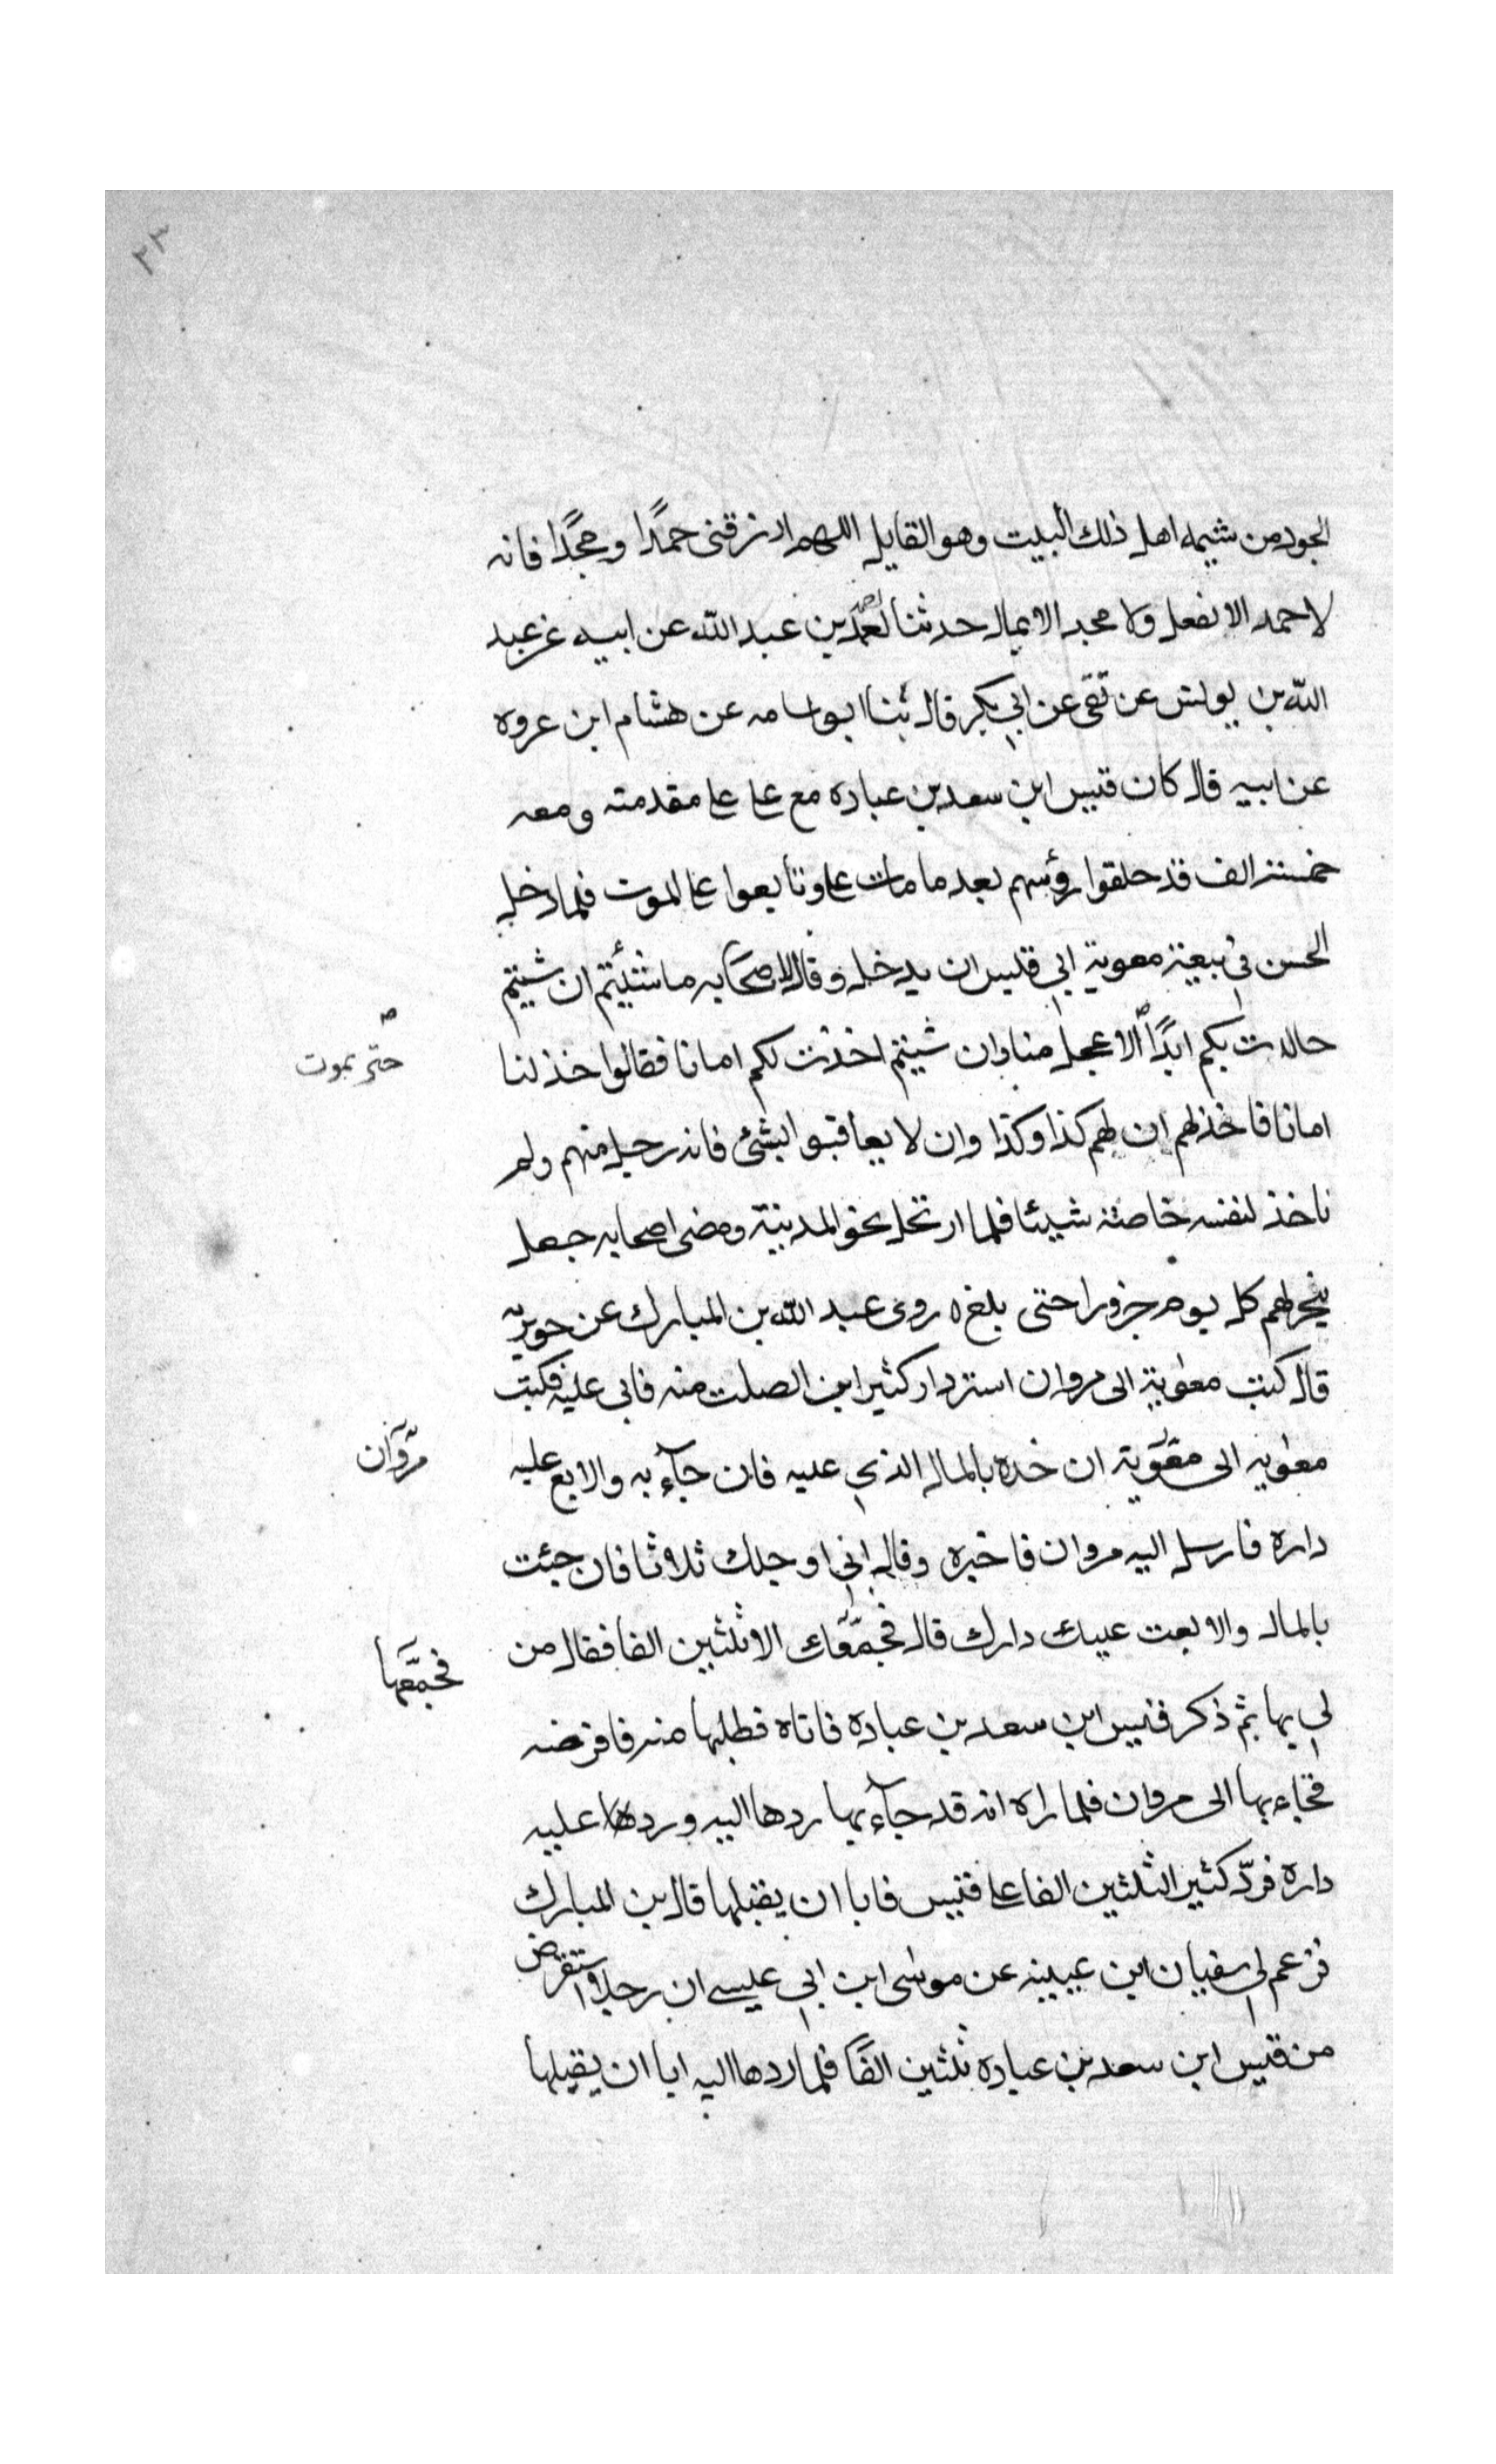 ٢٣
الجود من شيمه اهل ذلك البيت وهو القايل اللهم ارزقنى حمدًا ومجدًا فانه
لا حمد الا بفعل ولا مجد الا بمال حدثنا بن عبد الله عن ابيه عن عبد
الله بن يونس عن بقى عن ابي بكر قال ثنا ابو اسامه عن هشام ابن عروه
عن ابيه قال كان قيس ابن سعد بن عباده مع على على مقدمته ومعه
خمسة الف قد حلقوا رؤسهم بعد ما مات على وتابعوا على الموت فلما دخل
الحسن في بيعة معوية ابي قيس ان يدخل وقال لاصحابه ما شئتم ان شيتم
جالدت بكم ابدًا الاعجل منا وان شيتم اخذت لكم امانا فقالوا خذ لنا
حتى يموت
امانا فاخذ لهم ان لهم كذا وكذا وان لا يعاقبوا بشئ فانه رجل منهم ولم
ناخذ لنفسه خاصة شيئا فلما ارتحل نحو المدينة ومضى اصحابه جعل
ينحر لهم كل يوم جزورا حتى بلغ ه روى عبد الله بن المبارك عن جويرية
قال كتب معٰوية الى مروان استر دار كثير ابن الصلت منه فابى عليه فكتب
معٰويه الى معٰوية ان خده بالمال الذي عليه فان جآء به والا بع عليه
مروان
داره فارسل اليه مروان فاخبره وقال اني اوجلك ثلاثا فان جئت
بالمال والا بعت عليك دارك قال فجمعك الا ثلثين الفا فقال من
فجمعها
لي بها ثم ذكر قيس ابن سعد بن عباده فاتاه فطلبها منه فاقرضه
فجاء بها الى مروان فلما راه انه قد جآء بها ردها اليه ورد عليه
داره فردّ كثير الثلثين الفا على قيس فابا ان يقبلها قال بن المبارك
فزعم لي سفيان ابن عيينه عن موسٰى ابن ابي عيسى ان رجلا استقرض
من قيس ابن سعد بن عباده ثلثين الفًا فلما ردها اليه ابا ان يقبلها